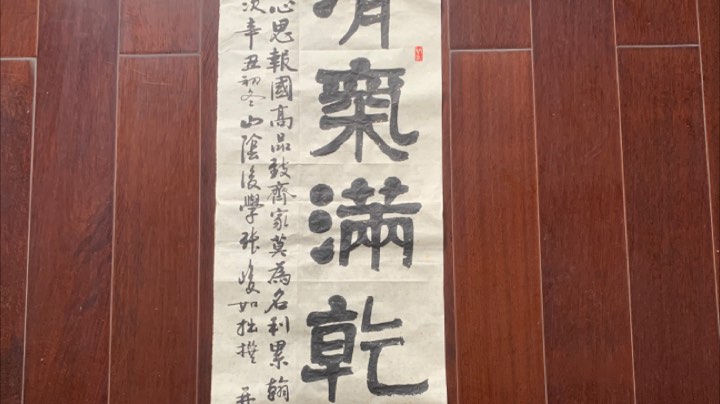 清氣滿乾
心思報國高品致齊家莫為名利累翰
次辛丑初冬山陰後學張峻如拙撰 并